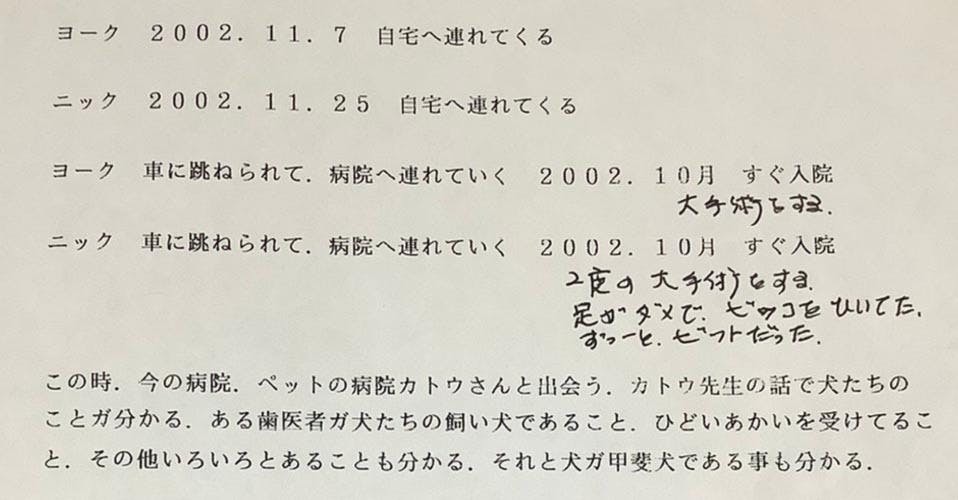 ヨーク　２００２．１１．７　自宅へ連れてくる
ニック　２００２．１１．２５　自宅へ連れてくる
ヨーク　車に跳ねられて．病院へ連れていく　２００２．１０月　すぐ入院
大手術をする．
ニック　車に跳ねられて．病院へ連れていく　２００２．１０月　すぐ入院
2度の大手術をする
足がダメで、ビッコをひいてた．
ずっーと、だった．
この時．今の病院．ペットの病院カトウさんと出会う．カトウ先生の話で犬たちの
ことガ分かる．ある歯医者ガ犬たちの飼い犬であること．ひどいあかいを受けてるこ
と．その他いろいろとあることも分かる．それと犬ガ甲斐犬である事も分かる．